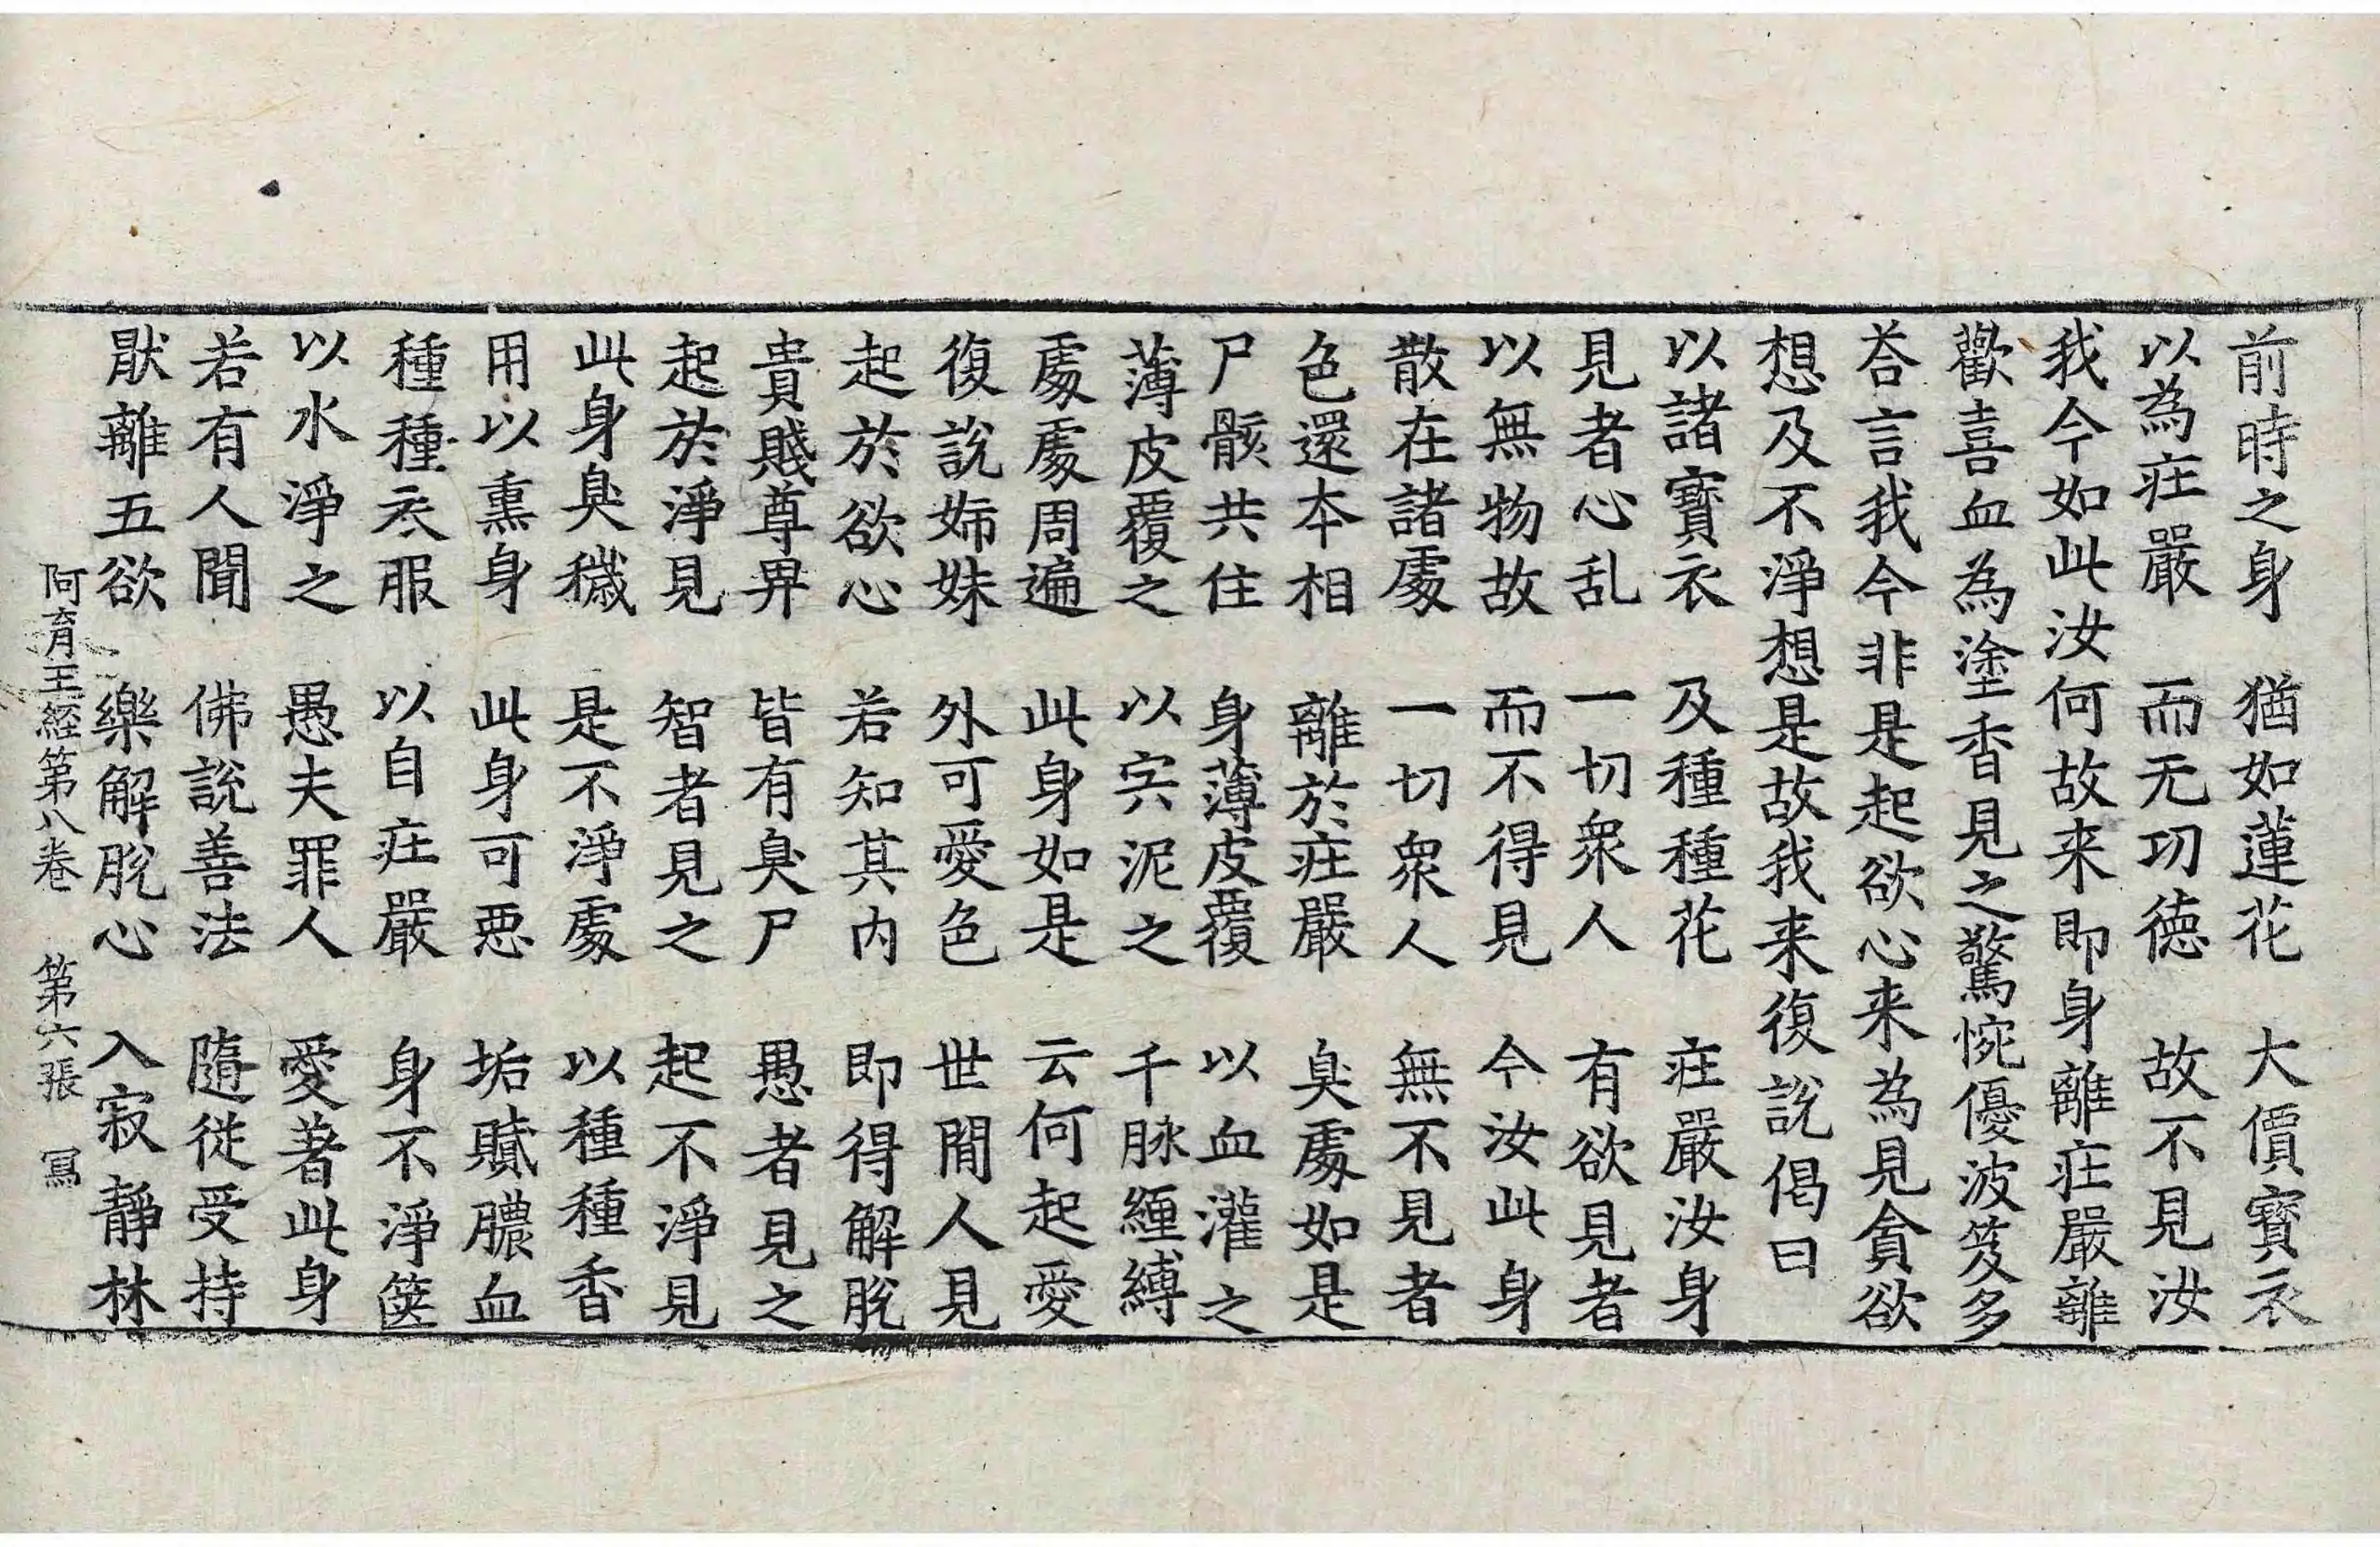 前時之身　猶如蓮花　大價寶衣
以為庄嚴　而无功德　故不見汝
我今如此汝何故来即身離庄嚴離
歡喜血為塗香見之驚惋優波笈多
荅言我今非是起欲心来為見貪欲
想及不淨想是故我来復説偈曰
以諸寶衣　及種種花　庄嚴汝身
見者心乱　一切衆人　有欲見者
以無物故　而不得見　今汝此身
散在諸處　一切衆人　無不見者
色還本相　離於庄嚴　臭處如是
尸骸共住　身薄皮覆　以血灌之
薄皮覆之　以宍泥之　千脉纏縛
處處周遍　此身如是　云何起愛
復説姉妹　外可愛色　世間人見
起於欲心　若知其内　即得解脱
貴賤尊畀　皆有臭尸　愚者見之
起於淨見　智者見之　起不淨見
此身臭穢　是不淨處　以種種香
用以熏身　此身可悪　垢膩膿血
種種衣服　以自庄嚴　身不淨篋
以水淨之　愚夫罪人　愛著此身
若有人聞　佛説善法　隨従受持
猒離五欲　樂解脱心　入寂靜林
阿育王経第八卷　第六張　冩